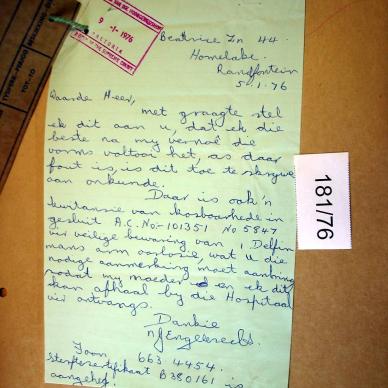 9 -1- 1976
PRETORIA
Beatrice Ln 44
Homelake
Randfontein
5.1.76
Waarde Heer,
met graagte stel
ek dit aan u, dat ek die
beste na my vermoë die
vorms voltooi het, as daar
fout is, is dit toe te skrywe
aan onkunde.
Daar is ook 'n
kwitansie van kosbaarhede in
gesluit A.C. No.- 101351 No 5847
vir veilige bewaring van 1 Delfin
mans arm oorlosie, wat u die
nodige aanmerking moet aanbring
sodat my moeder en ek dit
kan afhaal by die Hospitaal
vir ontvangs.
Dankie
Engelbrecht
663 4454.
sterftesertifikaat B380161 is
aangeheg!
181/76